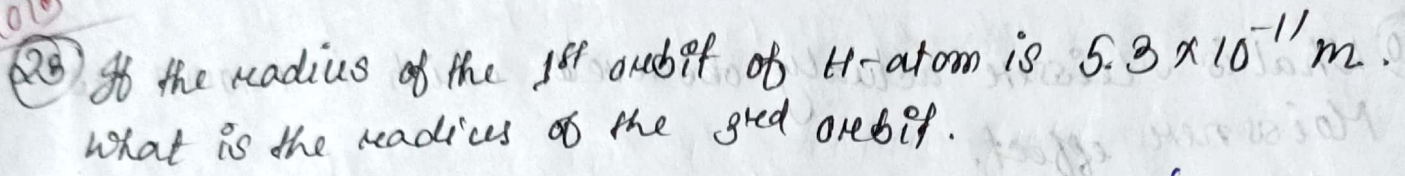 28) If the radius of the 1st orbit of H-atom is 5.3 x 10⁻¹¹ m.
What is the radius of the 3rd orbit.